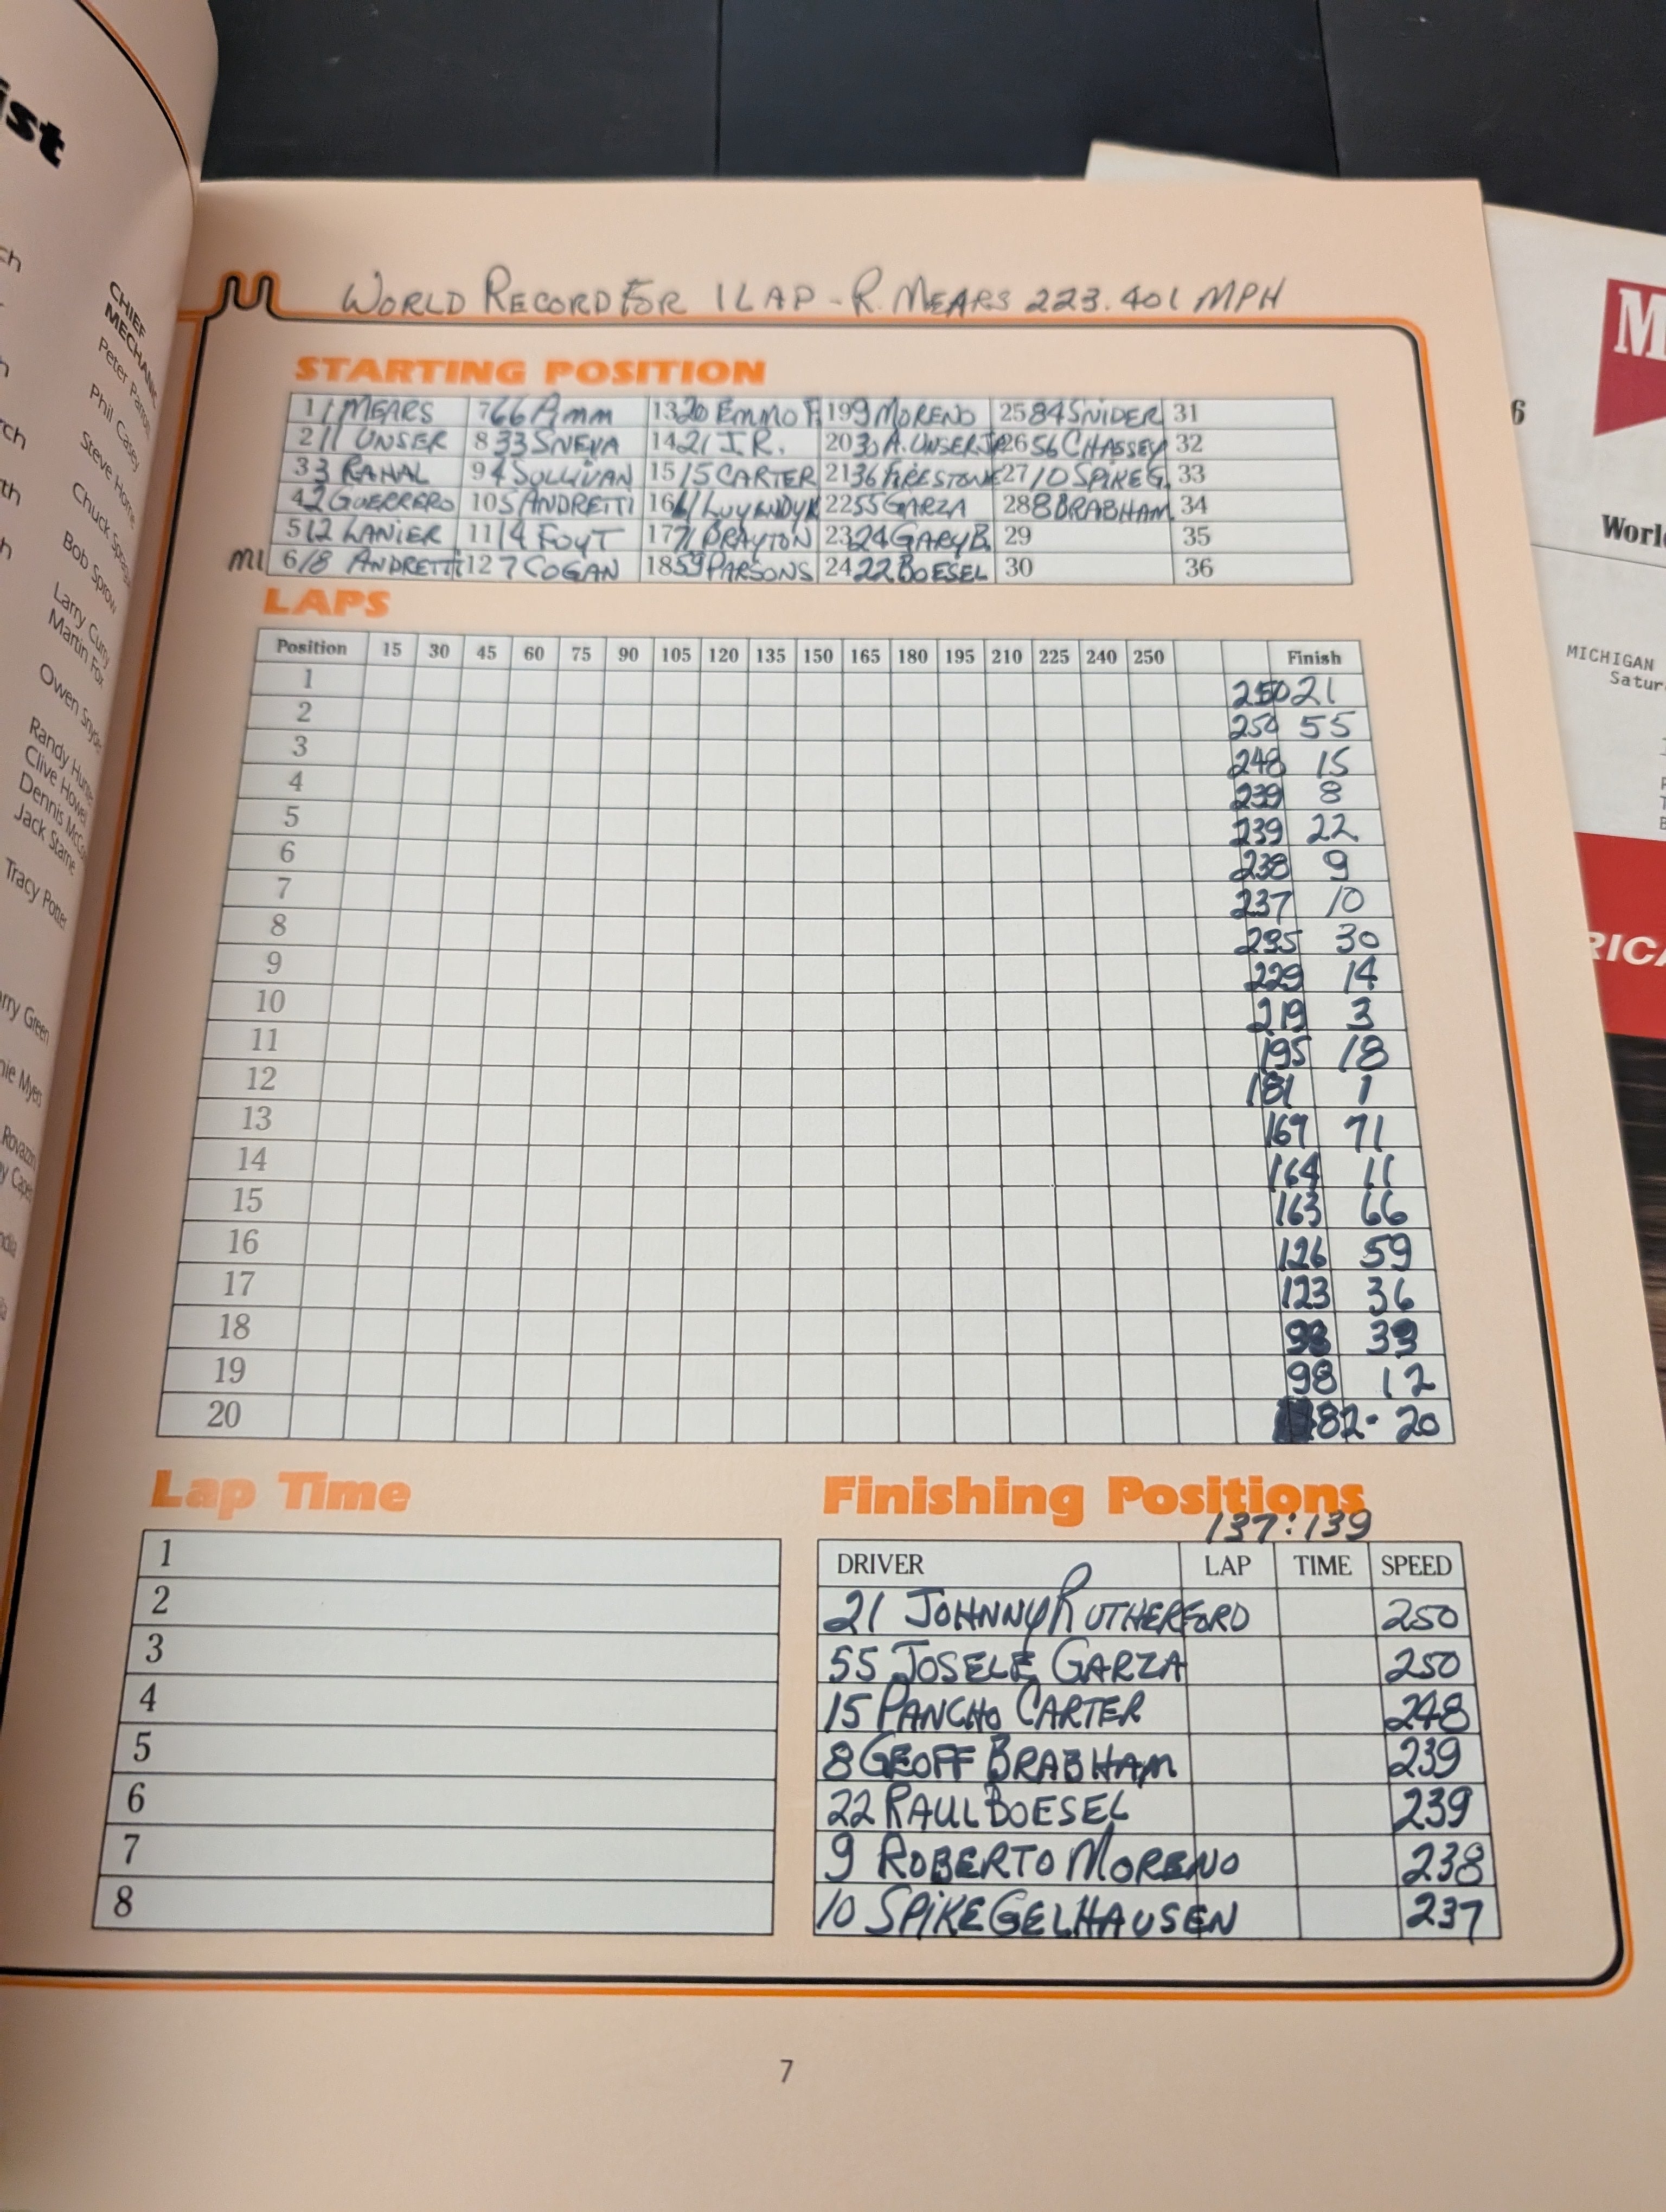 ist
CHIEF
MECHANIC
Phil Casey
Steve Horne
Bob Sprow
Larry Curry
Martin Fox
Owen Snyder
Randy Hunter
Clive Howell
Jack Starne
Tracy Potter
WORLD RECORD FOR 1 LAP - R. MEARS 223.401 MPH
STARTING POSITION
1 1 MEARS 7 66 Amm 13 20 EMMO F. 19 9 MORENO 25 84 SNIDER 31
2 11 UNSER 8 33 SNEVA 14 21 J.R. 20 30 A. UNSER JR 26 56 CHASSEY 32
3 3 RAHAL 9 4 SULLIVAN 15 15 CARTER 21 36 FIRESTONE 27 10 SPIKE G. 33
4 2 GUERRERO 10 5 ANDRETTI 16 61 LUYENDYK 22 55 GARZA 28 8 BRABHAM 34
5 12 LANIER 11 14 FOYT 17 71 BRAYTON 23 24 GARY B. 29 35
MI 6 18 ANDRETTI 12 7 COGAN 18 59 PARSONS 24 22 BOESEL 30 36
LAPS
Position 15 30 45 60 75 90 105 120 135 150 165 180 195 210 225 240 250 Finish
1 250 21
2 250 55
3 248 15
4 239 8
5 239 22
6 238 9
7 237 10
8 235 30
9 229 14
10 219 3
11 195 18
12 181 1
13 169 71
14 164 11
15 163 66
16 126 59
17 123 36
18 98 33
19 98 12
20 82 - 20
Lap Time
1
2
3
4
5
6
7
8
Finishing Positions
137:139
DRIVER LAP TIME SPEED
21 JOHNNY RUTHERFORD 250
55 JOSELE GARZA 250
15 PANCHO CARTER 248
8 GEOFF BRABHAM 239
22 RAUL BOESEL 239
9 ROBERTO MORENO 238
10 SPIKE GELHAUSEN 237
7
M
6
MICHIGAN